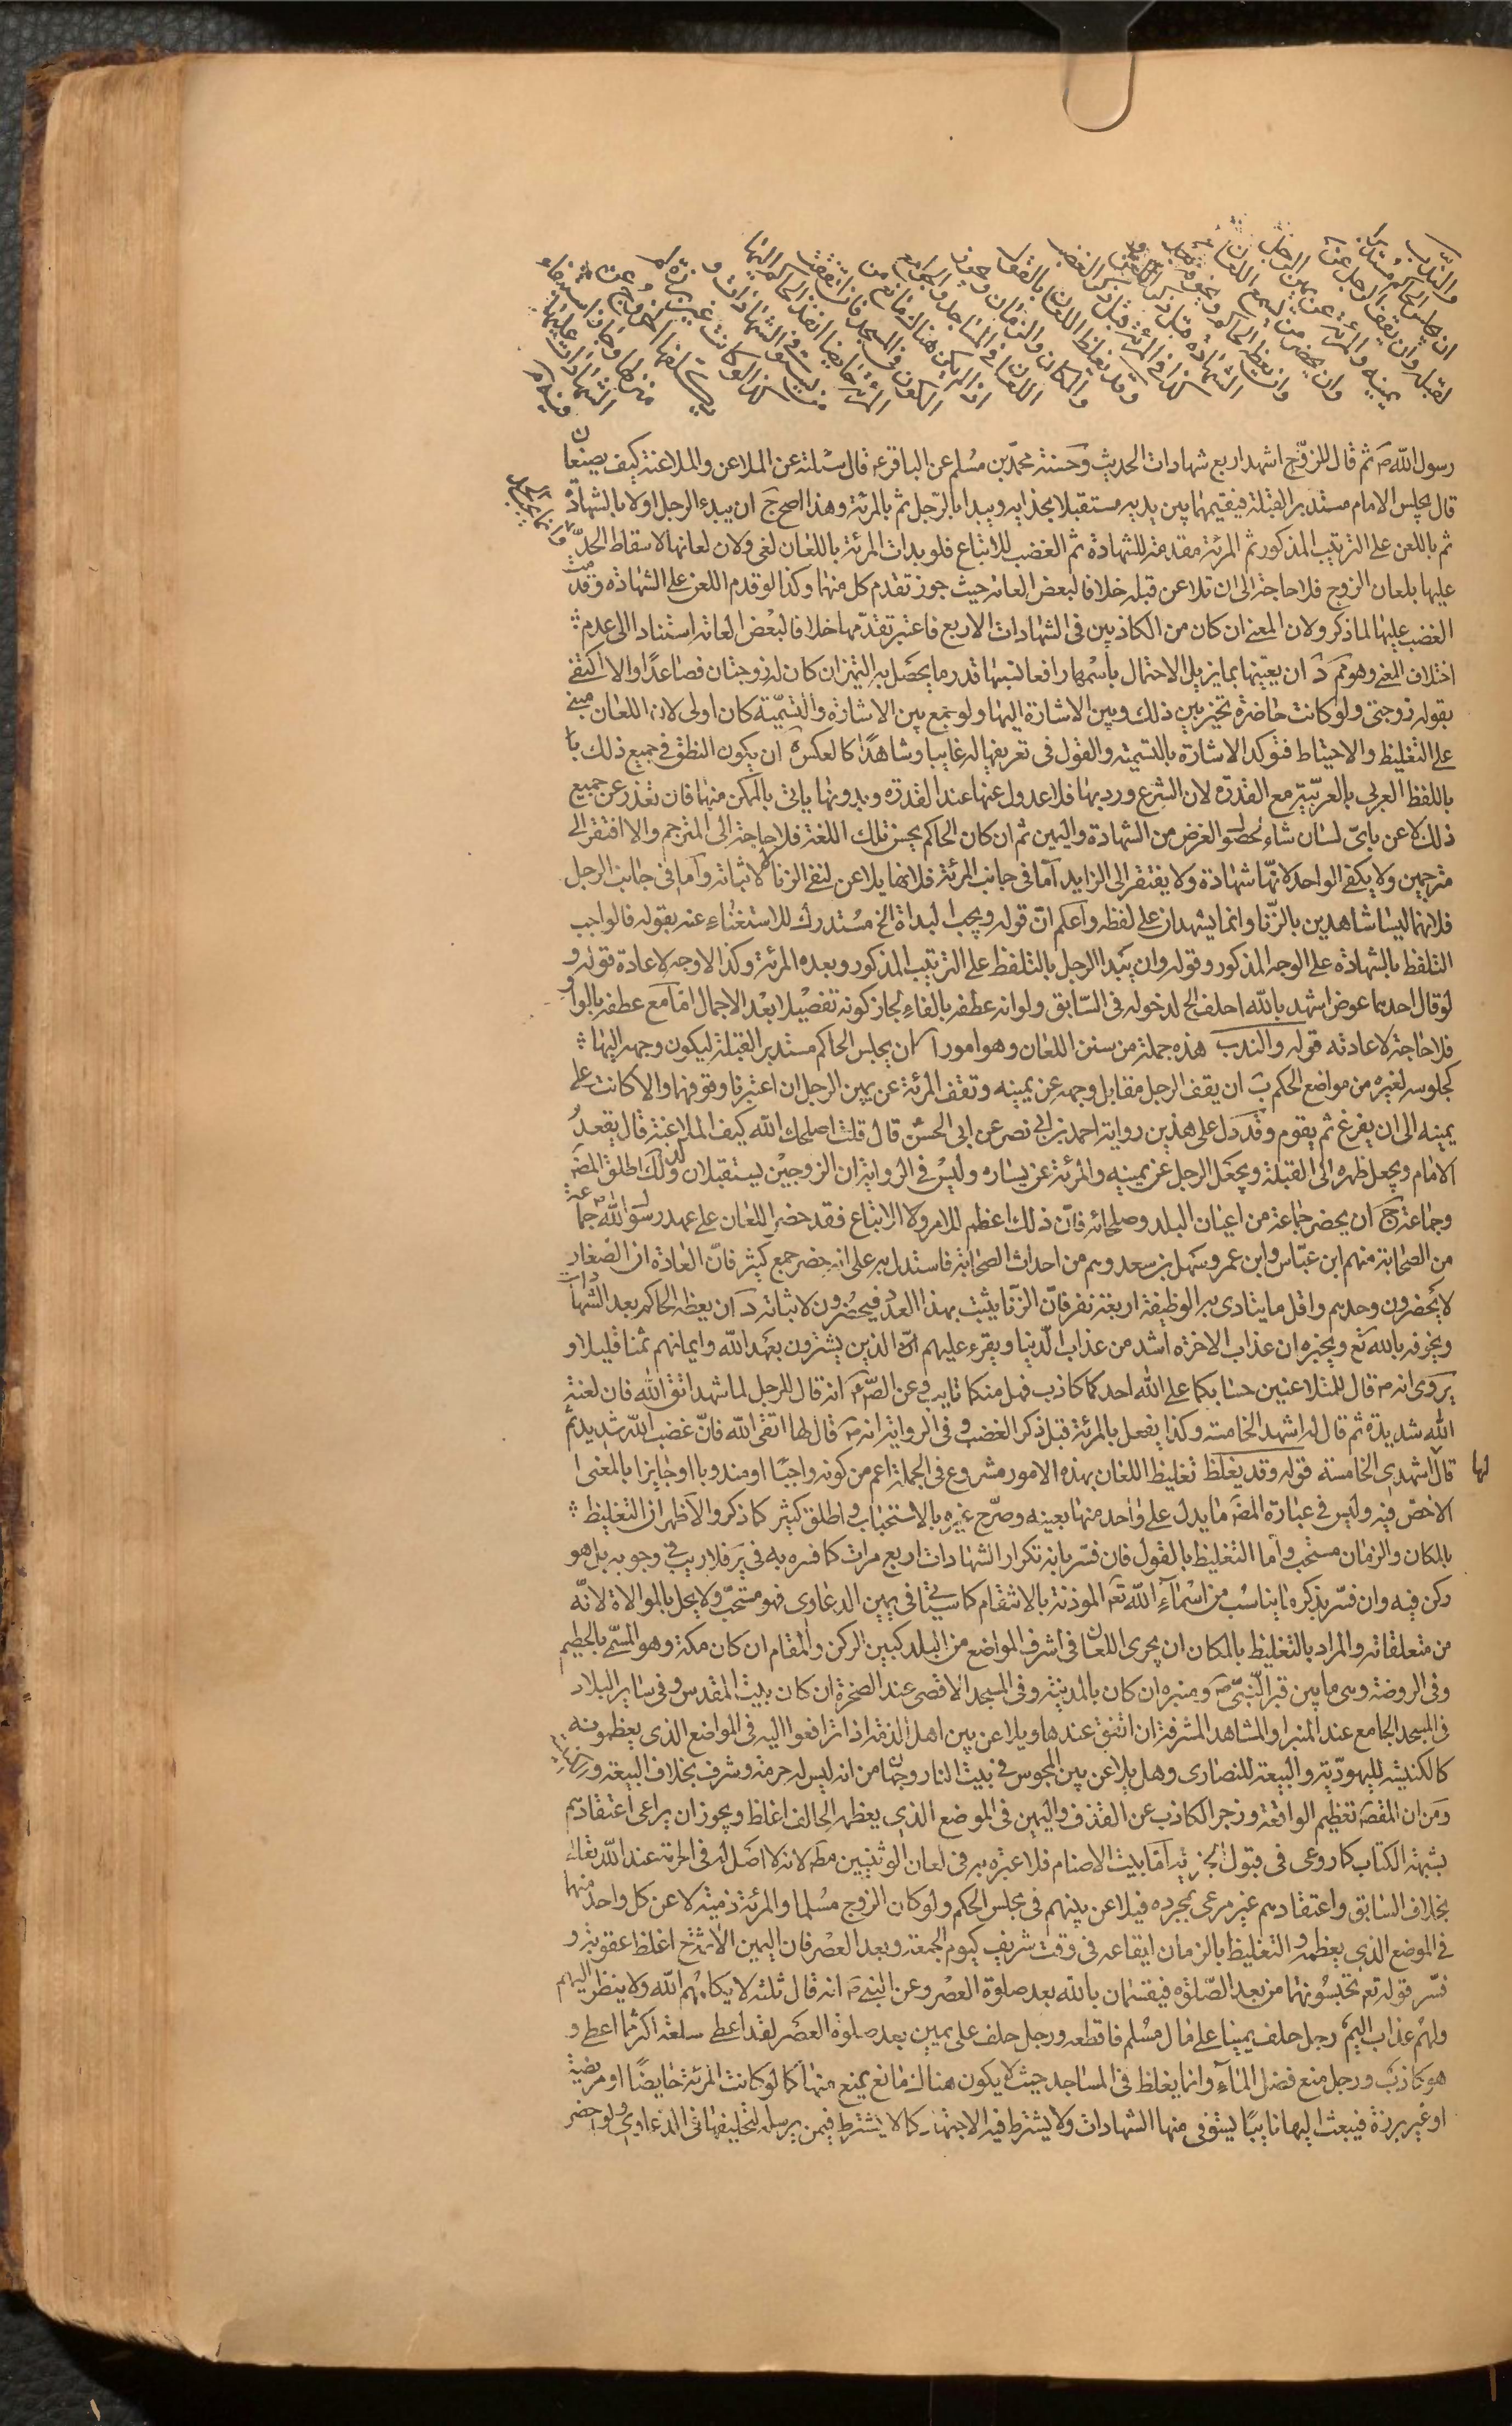 والندب
ان يجلس الحاكم مستدبر
القبلة وان يقف الرجل عن
يمينه والمرئة عن يمين الرجل
وان يحضر من يسمع اللعان
وان يعظه الحاكم ويخوفه بعد
الشهادة قبل ذكر اللعن
وكذا فى المرئة قبل ذكر الغضب
وقد يغلظ اللعان بالقول
والمكان والزمان ويجوز
اللعان فى المساجد والجوامع
اذا لم يكن هناك مانع من
الكون فى المسجد فان اتفقت
المرئة حايضا انفذ الحاكم اليها
من يستوفى الشهادات و
كذا لو كانت غير برزة لم
يكلفها الخروج عن
منزلها وجاز استيفاء
الشهادات عليها
فيه
رسول الله ص ثم قال للزوج اشهد اربع شهادات الحديث وحسنة محمد بن مسلم عن الباقر ع قال سئلته عن الملاعن والملاعنة كيف يصنعان
قال يجلس الامام مستدبر القبلة فيقيمهما بين يديه مستقبلا بحذايه ويبدا بالرجل ثم بالمرئة وهذا اصح ج ان يبدء الرجل اولا بالشهادة
ثم باللعن على الترتيب المذكور ثم المرئة مقدمة للشهادة ثم الغضب للاتباع فلو بدات المرئة باللعان لغى ولان لعانها لاسقاط الحد
عليها بلعان الزوج فلا حاجة الى ان تلاعن قبله خلافا لبعض العامة حيث جوز تقدم كل منهما وكذا لو قدم اللعن على الشهادة وقدمت
الغضب عليها لما ذكر ولان المعنى ان كان من الكاذبين فى الشهادات الاربع فاعتبر تقدمها خلافا لبعض العامة استنادا الى عدم
اختلاف المعنى وهو مم د ان يعينها بما يزيل الاحتمال باسمها رافعا نسبها قدر ما يحصل به التميز ان كان له زوجتان فصاعدا والا اكتفى
بقوله زوجتى ولو كانت حاضرة تخير بين ذلك وبين الاشارة اليها ولو جمع بين الاشارة والتسمية كان اولى لان اللعان مبنى
على التغليظ والاحتياط فتوكد الاشارة بالتسمية والقول فى تعريفها له غايبا وشاهدا كالعكس ه ان يكون النطق فى جميع ذلك با
باللفظ العربى بالعربية مع القدرة لان الشرع ورد بها فلا عدول عنها عند القدرة وبدونها ياتى بالممكن منها فان تعذر عن جميع
ذلك لاعن باى لسان شاء لحصول الغرض من الشهادة واليمين ثم ان كان الحاكم يحسن تلك اللغة فلا حاجة الى المترجم والا افتقر الى
مترجمين ولا يكفى الواحد لانها شهادة ولا يفتقر الى الزايد اما فى جانب المرئة فلانها يلاعن لنفى الزنا لا لاثباته واما فى جانب الرجل
فلانهما ليسا شاهدين بالزنا وانما يشهدان على لفظه واعلم ان قوله ويجب البداة الخ مستدرك للاستغناء عنه بقوله فالواجب
التلفظ بالشهادة على الوجه المذكور وقوله وان يبدا الرجل بالتلفظ على الترتيب المذكور وبعده المرئة وكذا لا وجه لاعادة قوله و
لو قال احدهما عوض اشهد بالله احلف الخ لدخوله فى السابق ولو انه عطفه بالفاء لجاز كونه تفصيلا بعد الاجمال اما مع عطفه بالواو
فلا حاجة لاعادته قوله والندب هذه جملة من سنن اللعان وهو امور ا ان يجلس الحاكم مستدبر القبلة ليكون وجهه اليها
كجلوسه لغيره من مواضع الحكم ب ان يقف الرجل مقابل وجهه عن يمينه وتقف المرئة عن يمين الرجل ان اعتبرنا وقوفهما والا كانت على
يمينه الى ان يفرغ ثم يقوم وقد دل على هذين رواية احمد بن ابى نصر عن ابى الحسن قال قلت اصلحك الله كيف الملاعنة قال يقعد
الامام ويجعل ظهره الى القبلة ويجعل الرجل عن يمينه والمرئة عن يساره وليس فى الرواية ان الزوجين يستقبلان ولذلك اطلق المصه
وجماعة ج ان يحضر جماعة من اعيان البلد وصلحائه فان ذلك اعظم للامر ولا الاتباع فقد حضر اللعان على عهد رسول الله ص جماعة
من الصحابة منهم ابن عباس وابن عمر وسهل بن سعد وهم من احداث الصحابة فاستدل به على انه حضر جمع كثير فان العادة ان الصغار
لا يحضرون وحدهم واقل ما يتادى به الوظيفة اربعة نفر فان الزنا يثبت بهذا العدد فيحضرون لاثباته د ان يعظه الحاكم بعد الشهادات
ويخوفه بالله تع ويخبره ان عذاب الاخرة اشد من عذاب الدنيا ويقرء عليهم ان الذين يشترون بعهد الله وايمانهم ثمنا قليلا و
يروى انه ص قال للمتلاعنين حسابكما على الله احدكما كاذب فهل منكما تايب وعن الص ع انه قال للرجل لما شهد اتق الله فان لعنة
الله شديدة ثم قال له اشهد الخامسة وكذا يفعل بالمرئة قبل ذكر الغضب وفى الرواية انه ص قال لها اتقى الله فان غضب الله شديد ثم
قال لها اشهدى الخامسة قوله وقد يغلظ تغليظ اللعان بهذه الامور مشروع فى الجملة اعم من كونه واجبا او مندوبا او جايزا بالمعنى
الاخص فيه وليس فى عبارة المصه ما يدل على واحد منها بعينه وصرح غيره بالاستحباب واطلق كثير كما ذكر والاظهر ان التغليظ
بالمكان والزمان مستحب واما التغليظ بالقول فان فسر بانه تكرار الشهادات اربع مرات كما فسره به فى ير فلا ريب فى وجوبه بل هو
ركن فيه وان فسر بذكره ما يناسب من اسماء الله تعه الموذنة بالانتقام كما سياتى فى يمين الدعاوى فهو مستحب ولا يخل بالموالاة لانه
من متعلقاته والمراد بالتغليظ بالمكان ان يجرى اللعان فى اشرف المواضع من البلد كبين الركن والمقام ان كان مكة وهو المسمى بالحطيم
وفى الروضة وهى ما بين قبر النبى ص ومنبره ان كان بالمدينة وفى المسجد الاقصى عند الصخرة ان كان ببيت المقدس وفى ساير البلاد
فى المسجد الجامع عند المنبر او المشاهد المشرفة ان اتفق عندها ويلاعن بين اهل الذمة اذا ترافعوا اليه فى المواضع الذى يعظمونه
كالكنيسة لليهودية والبيعة للنصارى وهل يلاعن بين المجوس فى بيت النار وجهان من انه ليس له حرمة وشرف بخلاف البيعة و
ومن ان المقصه تعظيم الواقعة وزجر الكاذب عن القذف واليمين فى الموضع الذى يعظمه الحالف اغلظ ويجوز ان يراعى اعتقادهم
بشبهة الكتاب كما روعى فى قبول الجزية اما بيت الاصنام فلا عبرة به فى لعان الوثنيين مطه لانه لا اصل له فى الحرمة عند الله تعالى
بخلاف السابق واعتقادهم غير مرعى بمجرده فيلاعن بينهم فى مجلس الحكم ولو كان الزوج مسلما والمرئة ذمية لاعن كل واحد منهما
فى الموضع الذى يعظمه والتغليظ بالزمان ايقاعه فى وقت شريف كيوم الجمعة وبعد العصر فان اليمين الاثمة ح اغلظ عقوبة و
فسر قوله تعه تحبسونهما من بعد الصلوة فيقسمان بالله بعد صلوة العصر وعن النبى ص انه قال ثلثة لا يكلمهم الله ولا ينظر اليهم
ولهم عذاب اليم رجل حلف يمينا على مال مسلم فاقطعه ورجل حلف على يمين بعد صلوة العصر لقد اعطى سلعته اكثر مما اعطى و
هو كاذب ورجل منع فضل الماء وانما يغلظ فى المساجد حيث لا يكون هناك مانع يمنع منها كما لو كانت المرئة حايضا او مريضة
او غير برزة فيبعث اليها نايبا يستوفى منها الشهادات ولا يشترط فيه الاجتهاد كما لا يشترط فيمن يرسله لتحليفها فى الدعاوى ولو احضر